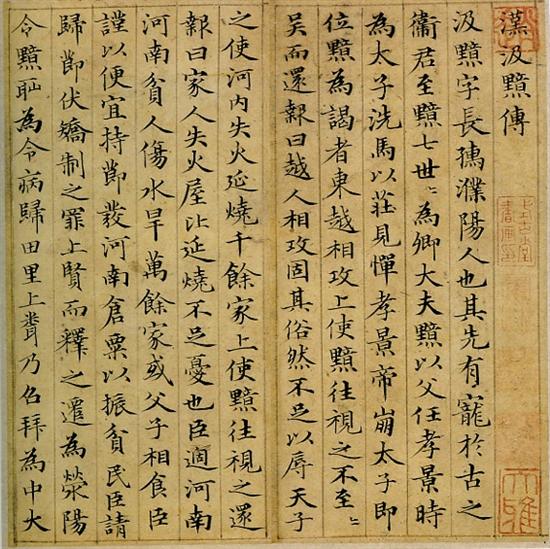 漢汲黯傳
汲黯字長孺濮陽人也其先有寵於古之
衛君至黯七世〻為卿大夫黯以父任孝景時
為太子洗馬以莊見憚孝景帝崩太子即
位黯為謁者東越相攻上使黯往視之不至〻
吳而還報曰越人相攻固其俗然不足以辱天子
之使河內失火延燒千餘家上使黯往視之還
報曰家人失火屋比延燒不足憂也臣適河南
河南貧人傷水旱萬餘家或父子相食臣
謹以便宜持節發河南倉粟以振貧民臣請
歸節伏矯制之罪上賢而釋之遷為滎陽
令黯恥為令病歸田里上聞乃召拜為中大
式古堂
書畫印
大雅